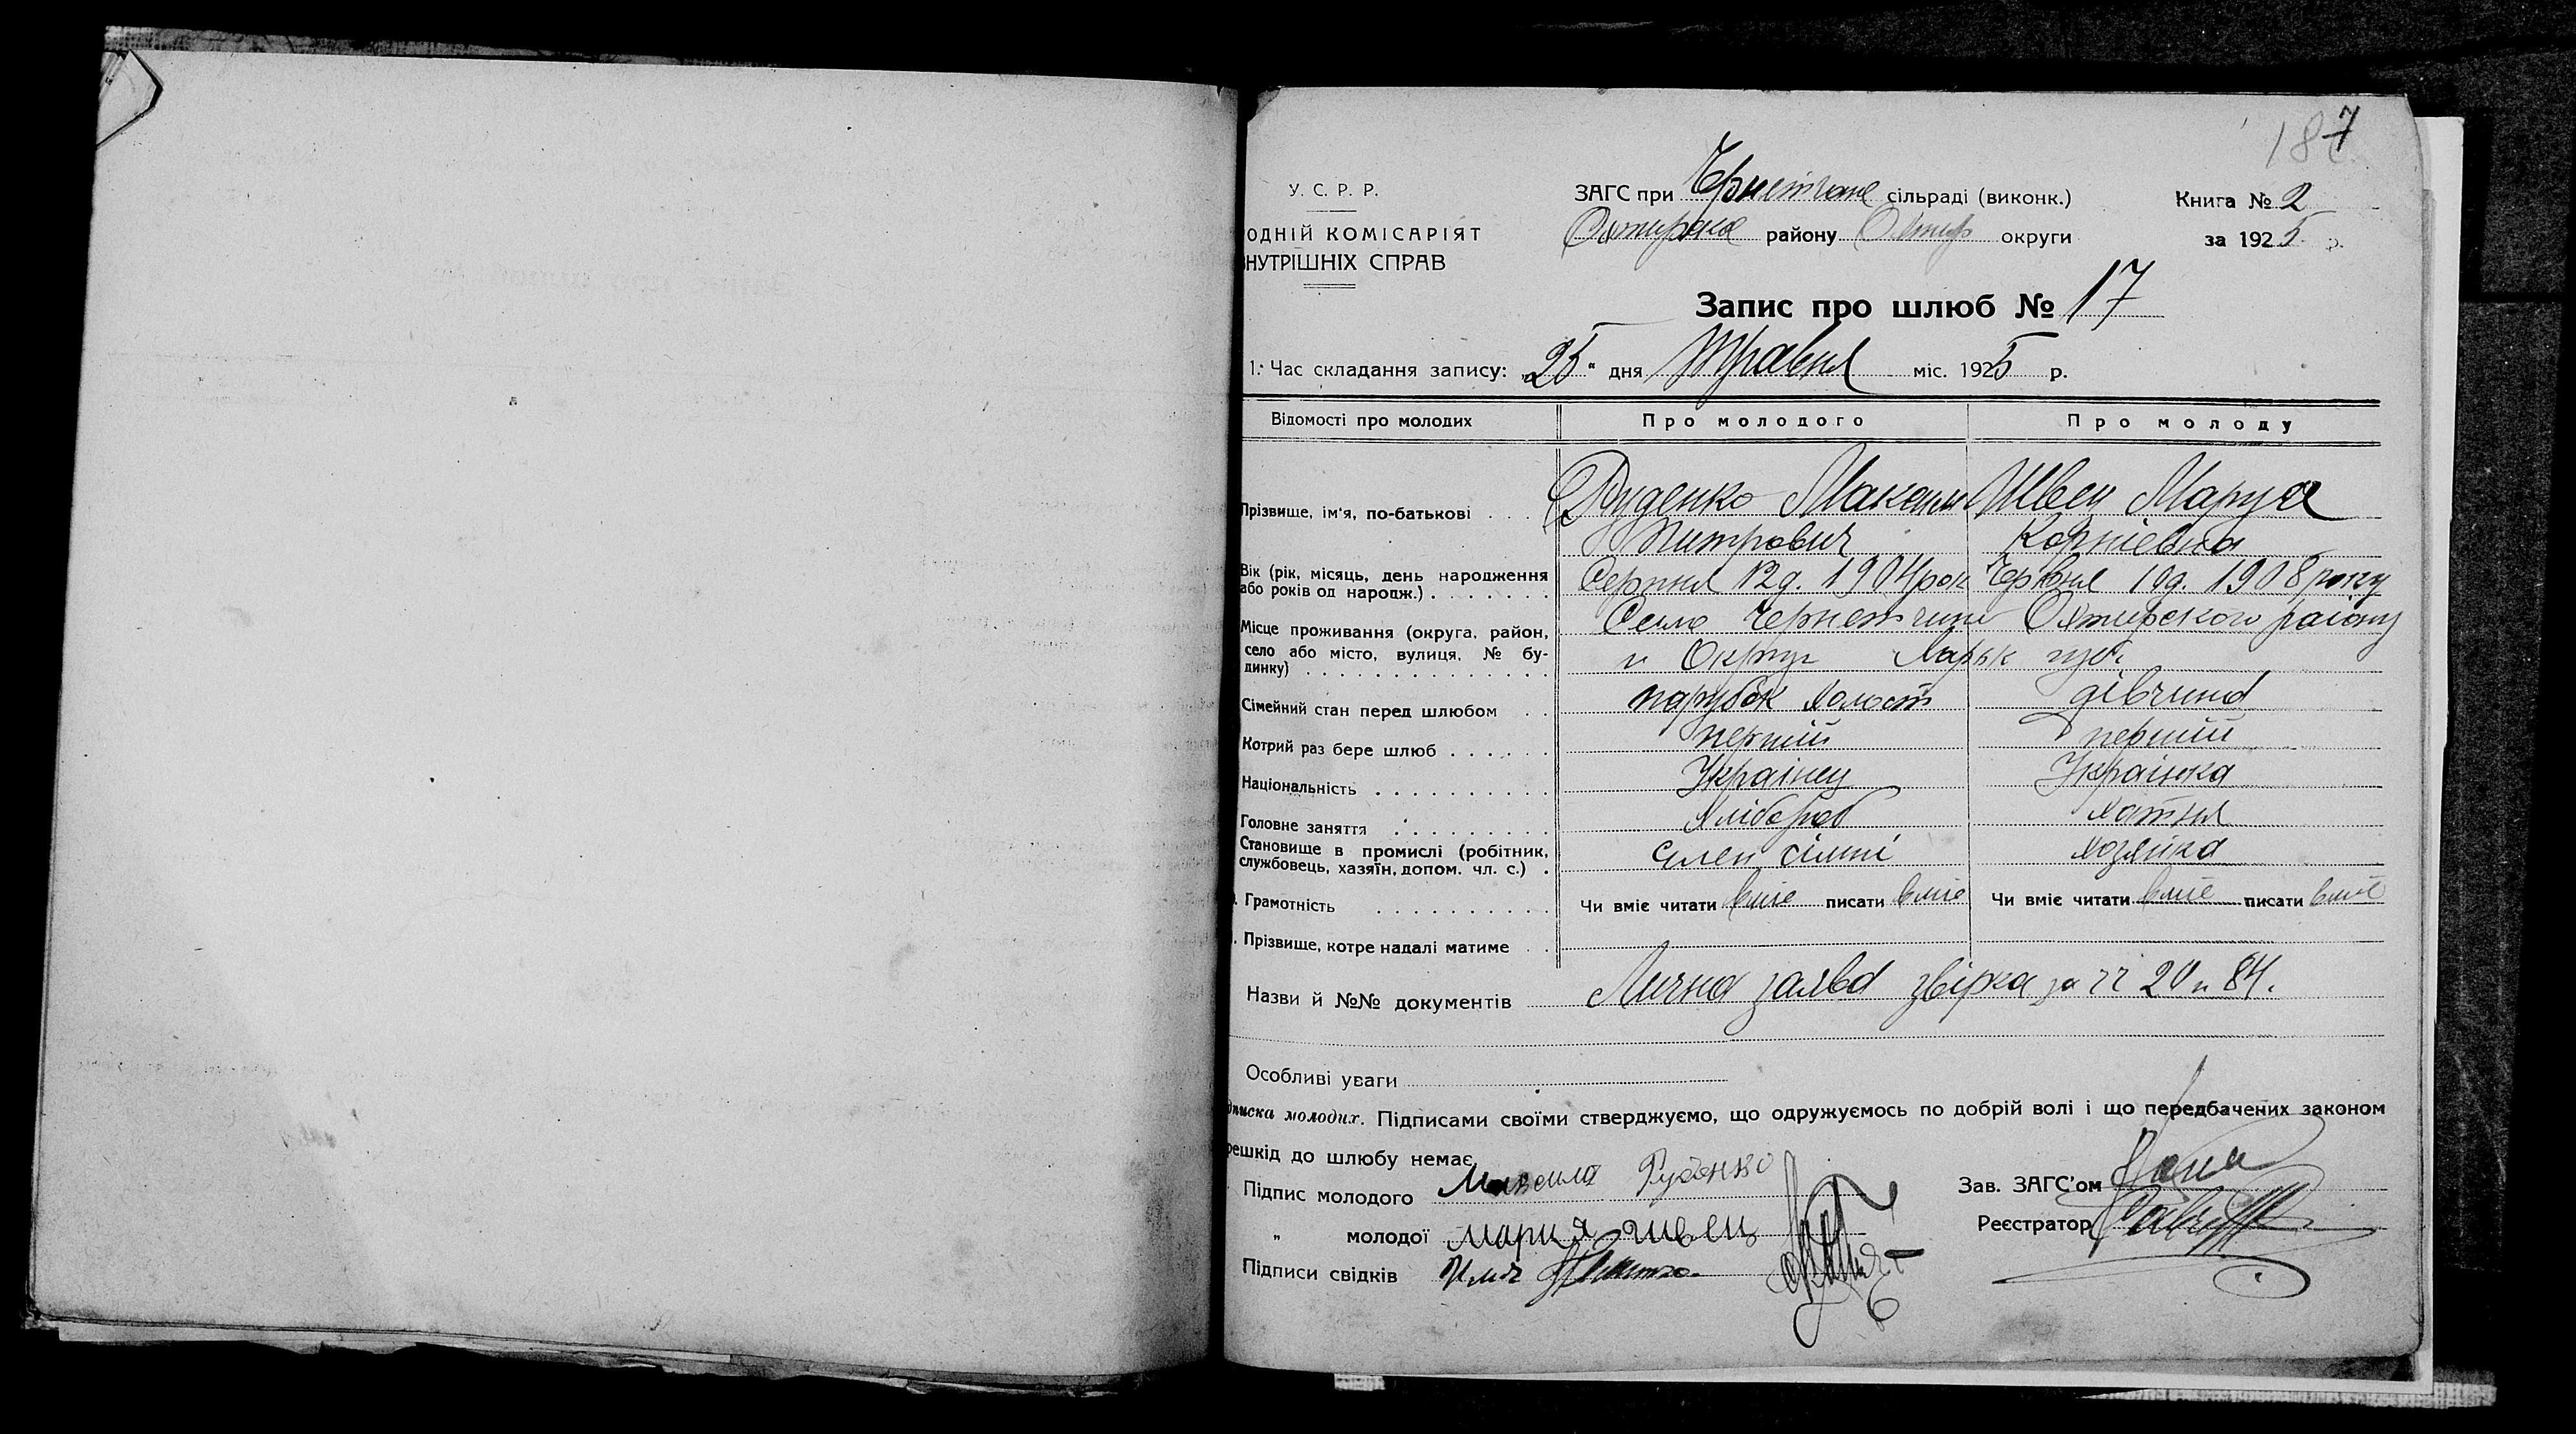 187
У. С. Р. Р.
ОДНІЙ КОМІСАРІЯТ
НУТРІШНІХ СПРАВ
ЗАГС при Чернетчане сільраді (виконк.)
Охтирска району Охтир округи
Книга № 2
за 1925 р.
Запис про шлюб № 17
1. Час складання запису: „25" дня Травня міс. 1925 р.
Відомості про молодих
Про молодого
Про молоду
Прізвище, ім'я, по-батькові
Руденко Максим
Питрович
Швец Маруся
Корніевна
Вік (рік, місяць, день народження
або років од народж.)
Серпня 12 д. 1904 рок
Червня 10 д. 1908 року
Місце проживання (округа, район,
село або місто, вулиця, № бу-
динку)
Село Чернетчине Охтирского раіону
и Округи Харьк губ.
Сімейний стан перед шлюбом
парубок холост
дівчина
Котрий раз бере шлюб
перший
перший
Національність
Украінец
Украінка
Головне заняття
Хлібороб
Хатня
Становище в промислі (робітник,
службовець, хазяїн, допом. чл. с.)
член сімьі
хозяйка
Грамотність
Чи вміє читати вміе писати вміе
Чи вміє читати вміе писати вміе
Прізвище, котре надалі матиме
Назви й №№ документів
Лична заява звірка за чч 20 и 84.
Особливі уваги
дписка молодих. Підписами своїми стверджуємо, що одружуємось по добрій волі і що передбачених законом
решкід до шлюбу немає.
Підпис молодого Руденко
„ молодої Мария Швец
Підписи свідків
Зав. ЗАГС'ом
Реєстратор